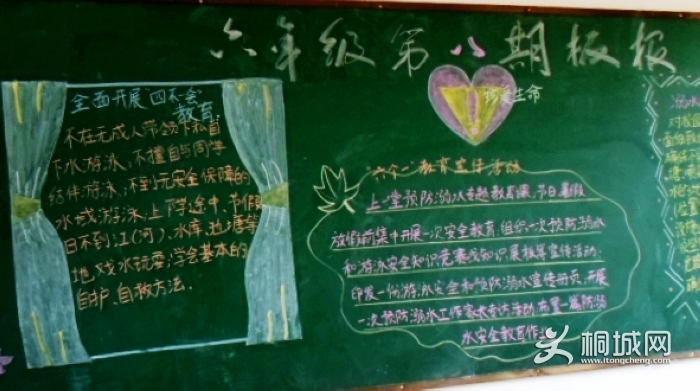 六年级第八期板报
全面开展"四不会"
教育.
不在无成人带领下私自
下水游泳,不擅自与同学
结伴游泳,不到无安全保障的
水域游泳,上下学途中,节假
日不到江(河)、水库、池塘等
地戏水玩耍;学会基本的
自护、自救方法.
珍爱生命
"六个一"教育宣传活动
上一堂预防溺水专题教育课,节日暑假
放假前集中开展一次安全教育,组织一次预防溺水
和游泳安全知识竞赛或知识展板等宣传活动;
印发一份游泳安全和预防溺水宣传册页,开展
一次预防溺水工作家长专访活动,布置一篇防溺
水安全教育作
桐城网
www.itongcheng.com